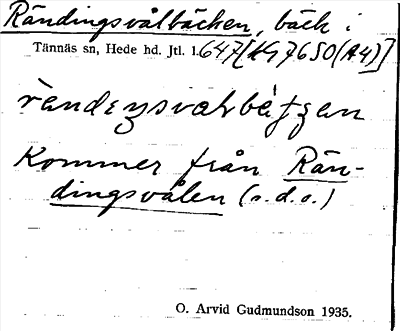 Rändingsvålbäcken, bäck i
Tännäs sn, Hede hd. Jtl. l. 647[Hg 7650(A4)]
Kommer från Rän-
dingsvålen (s.d.o.)
O. Arvid Gudmundson 1935.